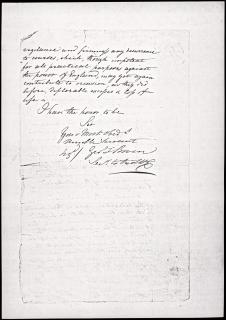 vigilance and firmness any recurrence
to murder, which, though impotent
for all practical purposes against
the power of England, may yet again
contribute to occasion as they did
before, deplorable excesses & loss of
life.
I have the honor to be
Sir
Your Most Obedt
Humble Servant
Geo: F. Bowen
Secy to